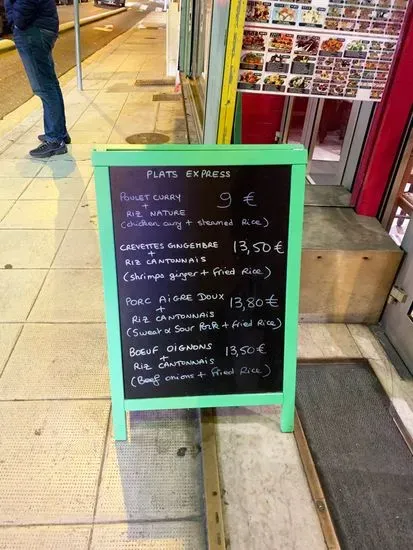 PLATS EXPRESS
POULET CURRY 9 €
+
RIZ NATURE
(chicken curry + steamed Rice)
CREVETTES GINGEMBRE 13,50 €
+
RIZ CANTONNAIS
(shrimps ginger + fried Rice)
PORC AIGRE DOUX 13,80 €
+
RIZ CANTONNAIS
(Sweat & Sour Pork + fried Rice)
BOEUF OIGNONS 13,50 €
+
RIZ CANTONNAIS
(Beef onions + fried Rice)